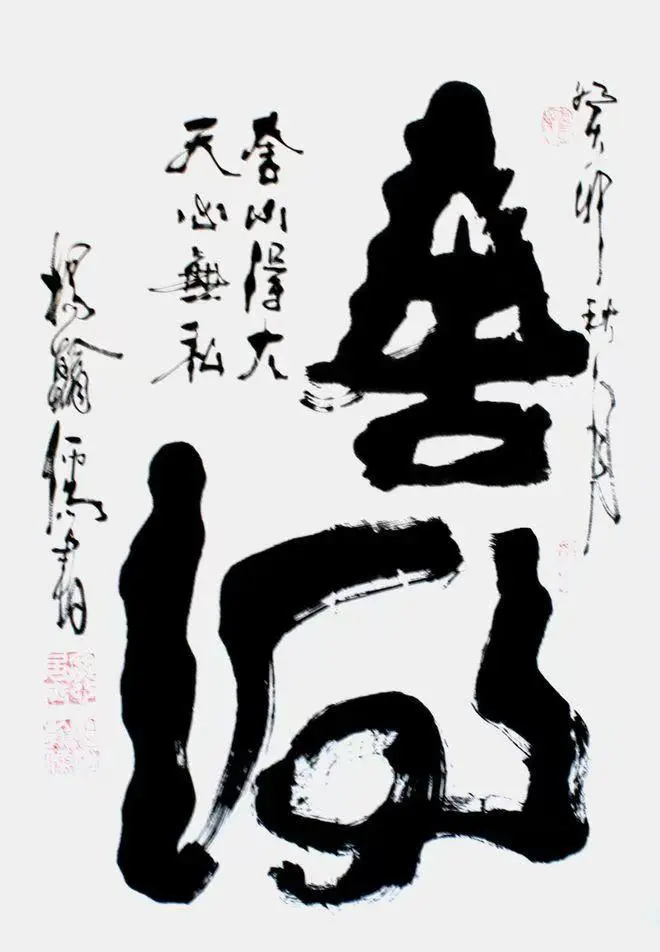 癸卯秋月
舍得
舍小得大
天心無私
楊翰儒書